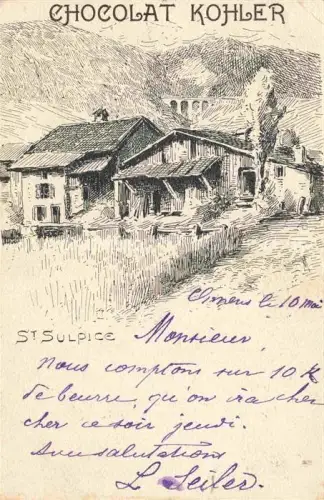 CHOCOLAT KOHLER
le 10 mai
ST SULPICE
Monsieur
nous comptons sur 10 K
de beurre, qu'on ira cher
cher ce soir jeudi.
Avec salutations
L. Seiler